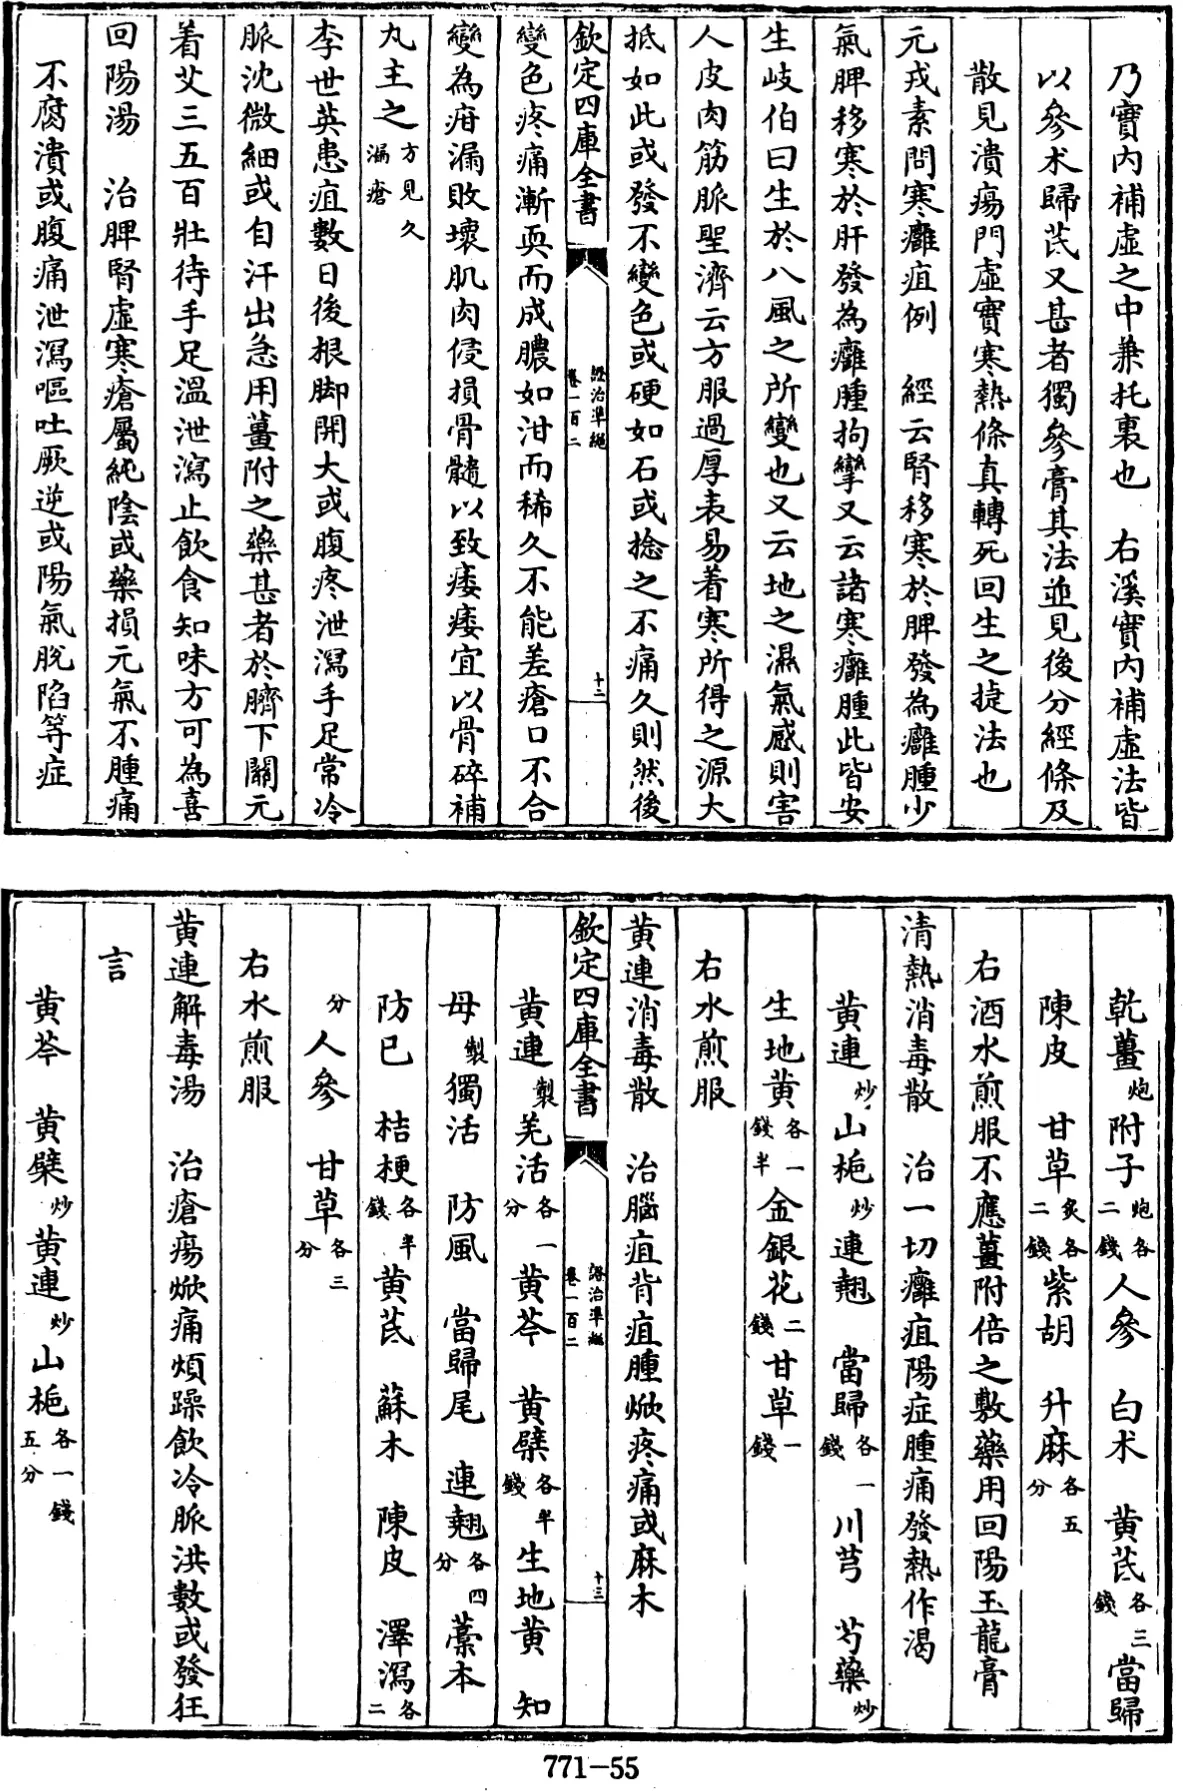 乃實内補虛之中兼托裏也　右溪實内補虛法皆
以參术歸芪又甚者獨參膏其法並見後分經條及
散見潰瘍門虛實寒熱條真轉死回生之捷法也
元戎素問寒癰疽例　經云腎移寒於脾發為癰腫少
氣脾移寒於肝發為癰腫拘攣又云諸寒癰腫此皆安
生岐伯曰生於八風之所變也又云地之濕氣感則害
人皮肉筋脈聖濟云方服過厚表易着寒所得之源大
抵如此或發不變色或硬如石或捻之不痛久則然後
欽定四庫全書
證治準繩
卷一百二
十二
變色疼痛漸耎而成膿如泔而稀久不能差瘡口不合
變為疳漏敗壞肌肉侵損骨髓以致痿痿宜以骨碎補
丸主之方見久漏瘡
李世英患疽數日後根脚開大或腹疼泄瀉手足常冷
脈沈微細或自汗出急用薑附之藥甚者於臍下關元
着艾三五百壯待手足溫泄瀉止飲食知味方可為喜
回陽湯　治脾腎虛寒瘡屬純陰或藥損元氣不腫痛
不腐潰或腹痛泄瀉嘔吐厥逆或陽氣脫陷等症
乾薑炮附子炮各二錢人參　白术　黄芪各三錢當歸
陳皮　甘草炙各二錢紫胡　升麻各五分
右酒水煎服不應薑附倍之敷藥用回陽玉龍膏
清熱消毒散　治一切癰疽陽症腫痛發熱作渴
黄連炒山梔炒連翹　當歸各一錢川芎　芍藥炒
生地黄各一錢半金銀花二錢甘草一錢
右水煎服
黄連消毒散　治腦疽背疽腫焮疼痛或麻木
欽定四庫全書
證治準繩
卷一百二
十三
黄連製羌活各一分黄芩　黄檗各半錢生地黄　知
母製獨活　防風　當歸尾　連翹各四分藁本
防已　桔梗各半錢黄芪　蘇木　陳皮　澤瀉各二
分人參　甘草各三分
右水煎服
黄連解毒湯　治瘡瘍焮痛煩躁飲冷脈洪數或發狂
言
黄芩　黄檗炒黄連炒山梔各一錢五分
771—55